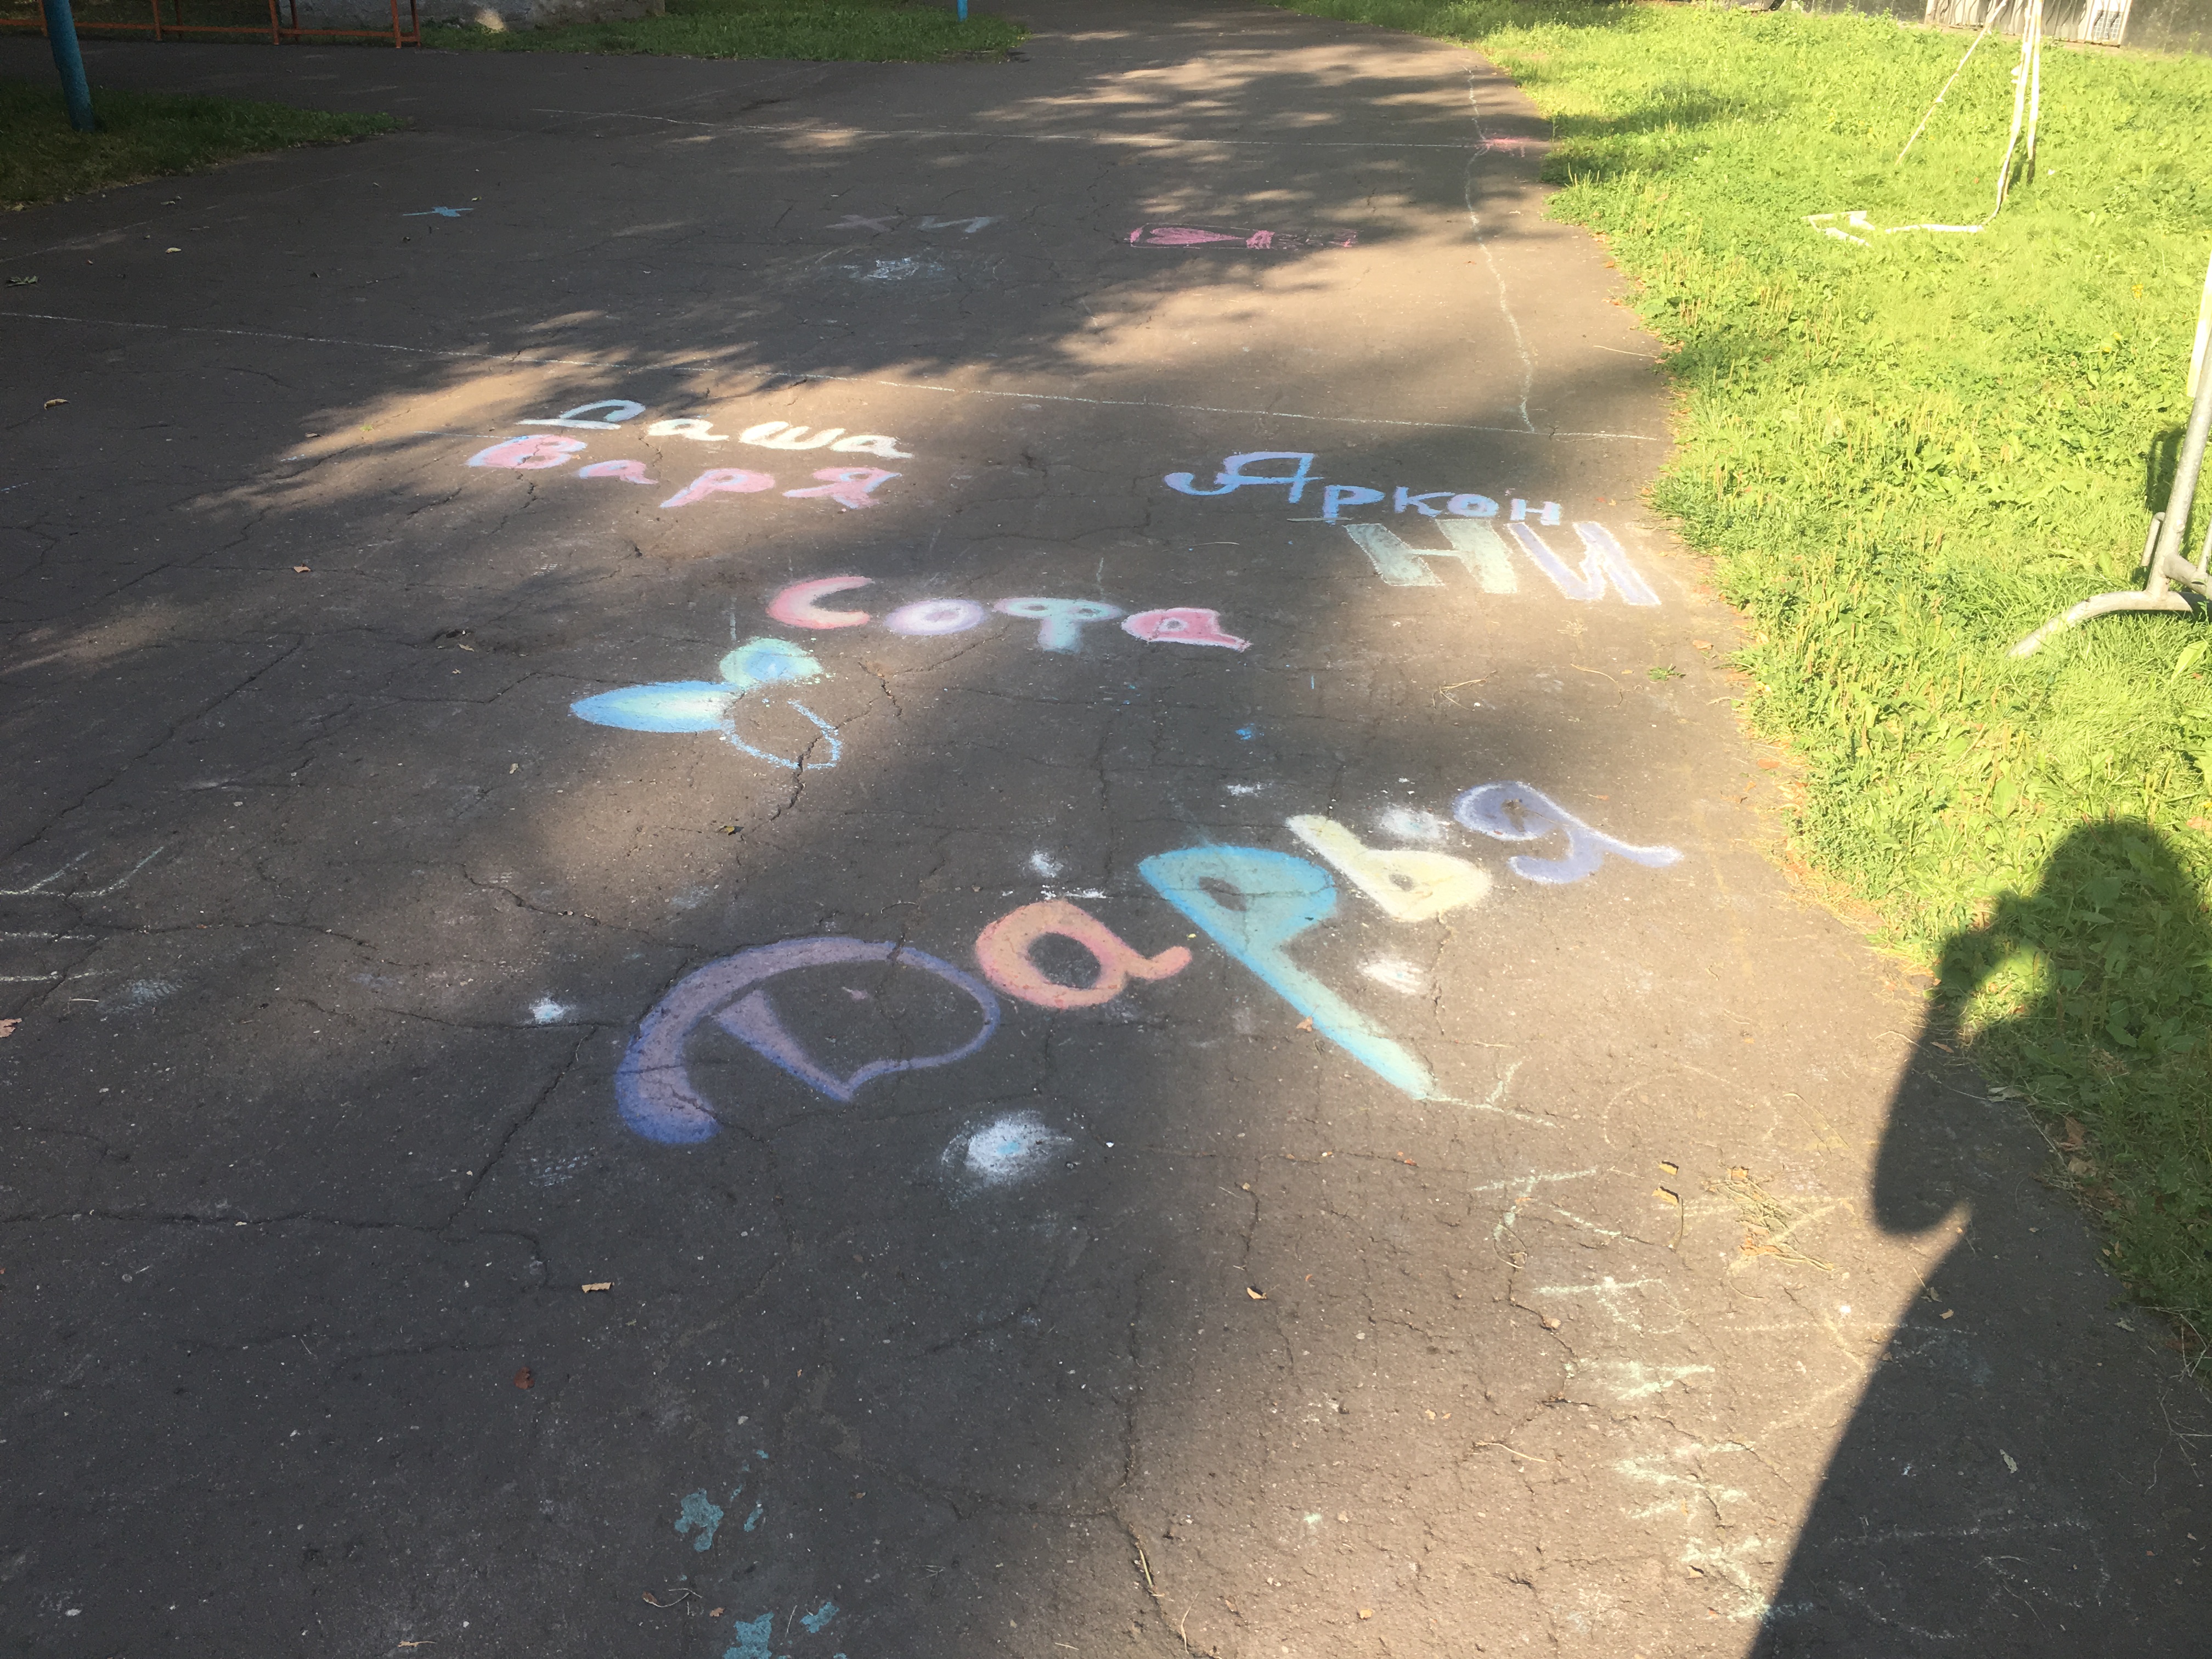 ХИ
Даша
Варя
Яркон
НИ
Софа
Дарья